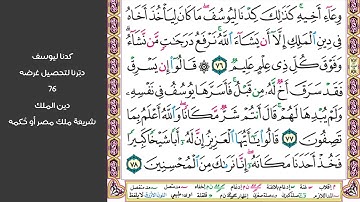 وِعَآءِ أَخِيهِ كَذَٰلِكَ كِدْنَا لِيُوسُفَ مَا كَانَ لِيَأْخُذَ أَخَاهُ
فِى دِينِ ٱلْمَلِكِ إِلَّآ أَن يَشَآءَ ٱللَّهُ نَرْفَعُ دَرَجَٰتٍ مَّن نَّشَآءُ
وَفَوْقَ كُلِّ ذِى عِلْمٍ عَلِيمٌ ٧٦ قَالُوٓا۟ إِن يَسْرِقْ
فَقَدْ سَرَقَ أَخٌ لَّهُۥ مِن قَبْلُ فَأَسَرَّهَا يُوسُفُ فِى نَفْسِهِۦ
وَلَمْ يُبْدِهَا لَهُمْ قَالَ أَنتُمْ شَرٌّ مَّكَانًا وَٱللَّهُ أَعْلَمُ بِمَا
تَصِفُونَ ٧٧ قَالُوا۟ يَٰٓأَيُّهَا ٱلْعَزِيزُ إِنَّ لَهُۥٓ أَبًا شَيْخًا كَبِيرًا
فَخُذْ أَحَدَنَا مَكَانَهُۥٓ إِنَّا نَرَىٰكَ مِنَ ٱلْمُحْسِنِينَ ٧٨
كدنا ليوسف
دبّرنا لتحصيل غرضه
76
دين الملك
شريعة ملك مصر أو حُكمه